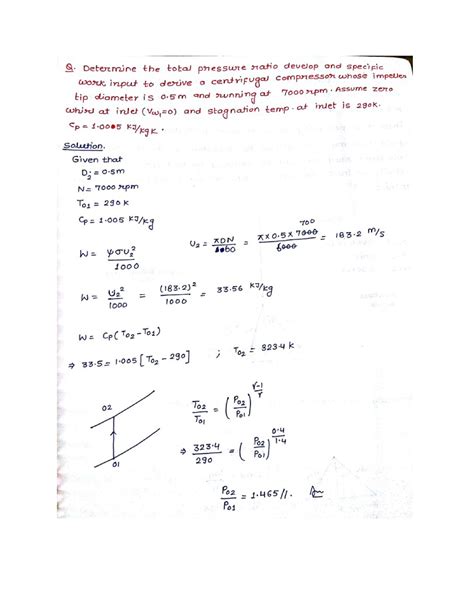 Q. Determine the total pressure ratio develop and specific
work input to derive a centrifugal compressor whose impeller
tip diameter is 0.5m and running at 7000 rpm. Assume zero
whirl at inlet (Vw₁=0) and stagnation temp. at inlet is 290K.
Cp = 1.005 KJ/kgK.
Solution.
Given that
D₂ = 0.5m
N = 7000 rpm
T01 = 290 K
Cp = 1.005 KJ/kg
W = ψσu₂² / 1000
U₂ = πDN / 60 = π×0.5×7000 / 6000 = 183.2 m/s
700
W = U₂² / 1000 = (183.2)² / 1000 = 33.56 KJ/kg
W = Cp(T02 - T01)
⇒ 33.5 = 1.005 [T02 - 290] ; T02 = 323.4 K
02
01
T02 / T01 = (P02 / P01)^(r-1 / r)
⇒ 323.4 / 290 = (P02 / P01)^(0.4 / 1.4)
P02 / P01 = 1.465 //. Ans